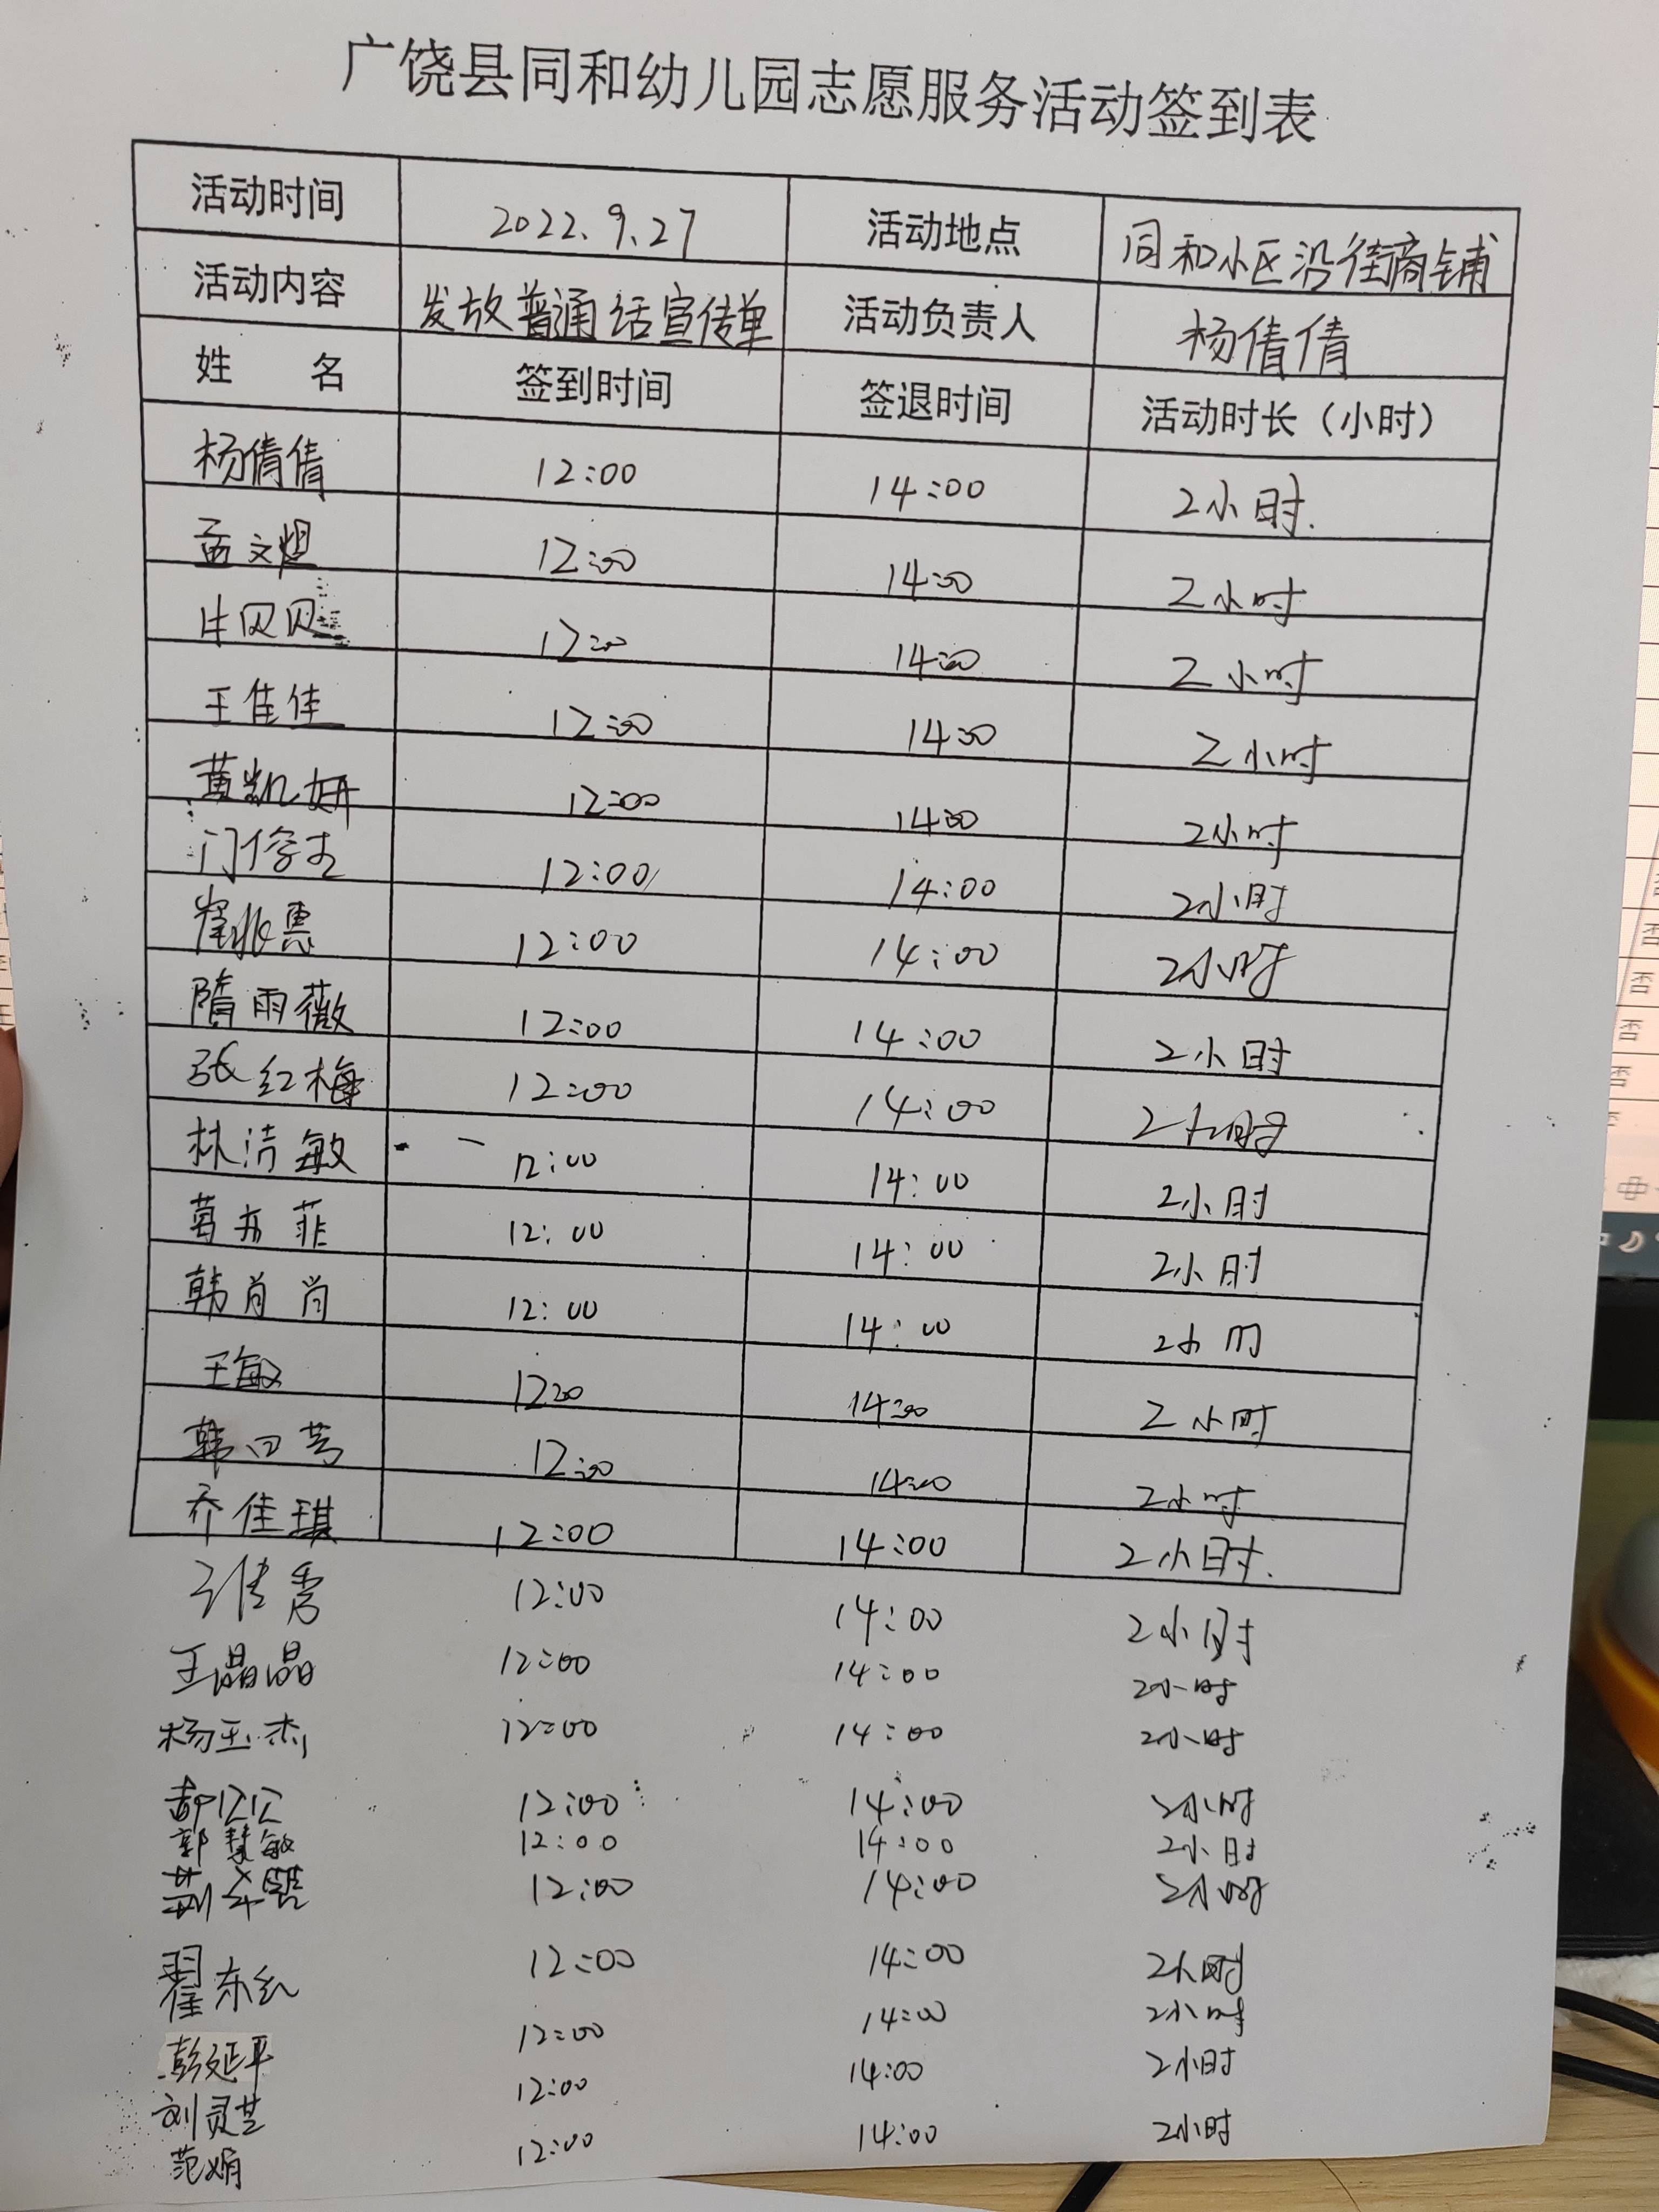 广饶县同和幼儿园志愿服务活动签到表
活动时间 2022.9.27 活动地点 同和小区沿街商铺
活动内容 发放普通话宣传单 活动负责人 杨倩倩
姓 名 签到时间 签退时间 活动时长（小时）
杨倩倩 12:00 14:00 2小时.
孟文煜 12:00 14:00 2小时
牛贝贝 12:00 14:00 2小时
王佳佳 12:00 14:00 2小时
黄凯妍 12:00 14:00 2小时
12:00 14:00 2小时
崔兆惠 12:00 14:00 2小时
隋雨薇 12:00 14:00 2小时
张红梅 12:00 14:00 2小时
林洁敏 12:00 14:00 2小时
葛亦菲 12:00 14:00 2小时
韩肖肖 12:00 14:00 2小时
王敏 12:00 14:00 2小时
12:00 14:00 2小时
乔佳琪 12:00 14:00 2小时.
12:00 14:00 2小时
王晶晶 12:00 14:00 2小时
杨玉杰 12:00 14:00 2小时
12:00 14:00 2小时
郭慧敏 12:00 14:00 2小时
12:00 14:00 2小时
翟东红 12:00 14:00 2小时
彭延平 12:00 14:00 2小时
刘灵芝 12:00 14:00 2小时
范娟 12:00 14:00 2小时
否
否
否
否